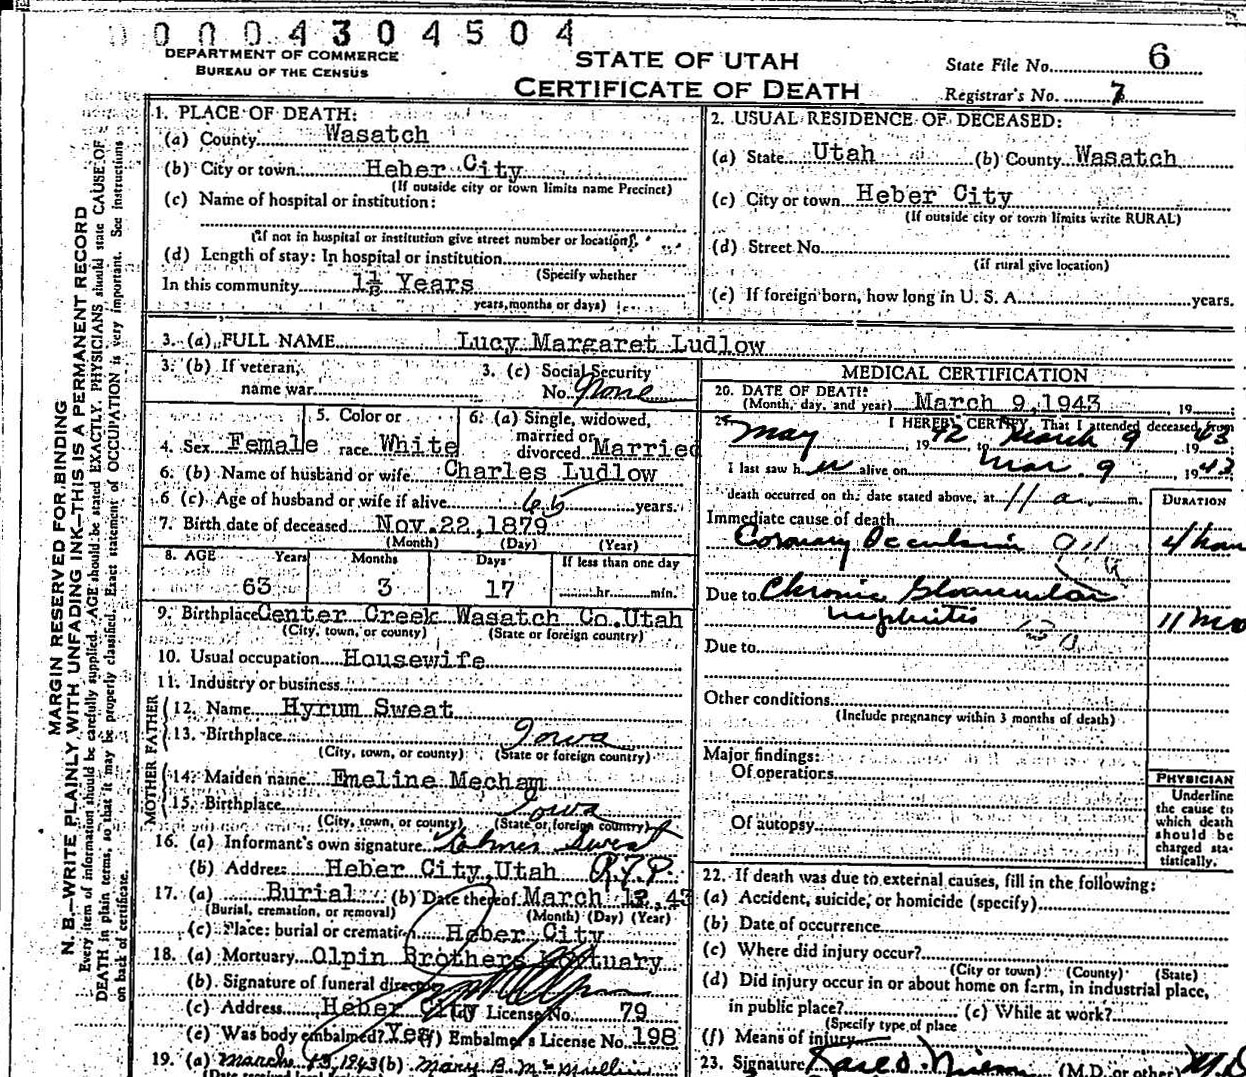 0004304504
DEPARTMENT OF COMMERCE
BUREAU OF THE CENSUS
STATE OF UTAH
CERTIFICATE OF DEATH
State File No. 6
Registrar's No. 7
MARGIN RESERVED FOR BINDING
N. B.—WRITE PLAINLY WITH UNFADING INK—THIS IS A PERMANENT RECORD
Every item of information should be carefully supplied. AGE should be stated EXACTLY. PHYSICIANS should state CAUSE OF
DEATH in plain terms, so that it may be properly classified. Exact statement of OCCUPATION is very important. See instructions
on back of certificate.
1. PLACE OF DEATH:
(a) County Wasatch
(b) City or town Heber City
(If outside city or town limits name Precinct)
(c) Name of hospital or institution:
(If not in hospital or institution give street number or location)
(d) Length of stay: In hospital or institution
(Specify whether
In this community Years
years, months or days)
2. USUAL RESIDENCE OF DECEASED:
(a) State Utah (b) County Wasatch
(c) City or town Heber City
(If outside city or town limits write RURAL)
(d) Street No.
(if rural give location)
(e) If foreign born, how long in U. S. A. years.
3. (a) FULL NAME Lucy Margaret Ludlow
3. (b) If veteran,
name war
3. (c) Social Security
No. None
4. Sex Female
5. Color or
race White
6. (a) Single, widowed,
married or
divorced Married
6. (b) Name of husband or wife Charles Ludlow
6. (c) Age of husband or wife if alive 65 years.
7. Birth date of deceased Nov. 22, 1879
(Month) (Day) (Year)
8. AGE Years Months Days If less than one day
63 3 17 hr. min.
9. Birthplace Center Creek Wasatch Co. Utah
(City, town, or county) (State or foreign country)
10. Usual occupation Housewife
11. Industry or business
FATHER
12. Name Hyrum Sweat
13. Birthplace Iowa
(City, town, or county) (State or foreign country)
MOTHER
14. Maiden name Emeline Mecham
15. Birthplace Iowa
(City, town, or county) (State or foreign country)
16. (a) Informant's own signature Sweat
(b) Address Heber City, Utah
17. (a) Burial (b) Date thereof March 43
(Burial, cremation, or removal) (Month) (Day) (Year)
(c) Place: burial or cremation Heber City
18. (a) Mortuary Olpin Brothers Mortuary
(b) Signature of funeral director
(c) Address Heber City License No. 79
(e) Was body embalmed? Yes (f) Embalmer's License No. 198
19. (a) March 13, 1943 (b) Mary B. McMullin
MEDICAL CERTIFICATION
20. DATE OF DEATH:
(Month, day, and year) March 9, 1943 , 19
21. I HEREBY CERTIFY, That I attended deceased from
May , 19 42 to March 9 19 43
I last saw her alive on Mar. 9 19 43
death occurred on the date stated above, at 11 a. m.
DURATION
Immediate cause of death
Coronary Occulsion 4 hour
Due to Chronic
nephritis 11 mo
Due to
Other conditions
(Include pregnancy within 3 months of death)
Major findings:
Of operations
Of autopsy
PHYSICIAN
Underline
the cause to
which death
should be
charged sta-
tistically.
22. If death was due to external causes, fill in the following:
(a) Accident, suicide, or homicide (specify)
(b) Date of occurrence
(c) Where did injury occur?
(City or town) (County) (State)
(d) Did injury occur in or about home on farm, in industrial place,
in public place? (e) While at work?
(Specify type of place
(f) Means of injury
23. Signature (M.D. or other) M.D.